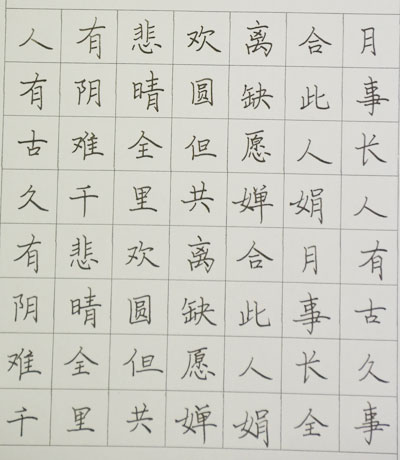 人有悲欢离合月
有阴晴圆缺此事
古难全但愿人长
久千里共婵娟人
有悲欢离合月有
阴晴圆缺此事古
难全但愿人长久
千里共婵娟全事